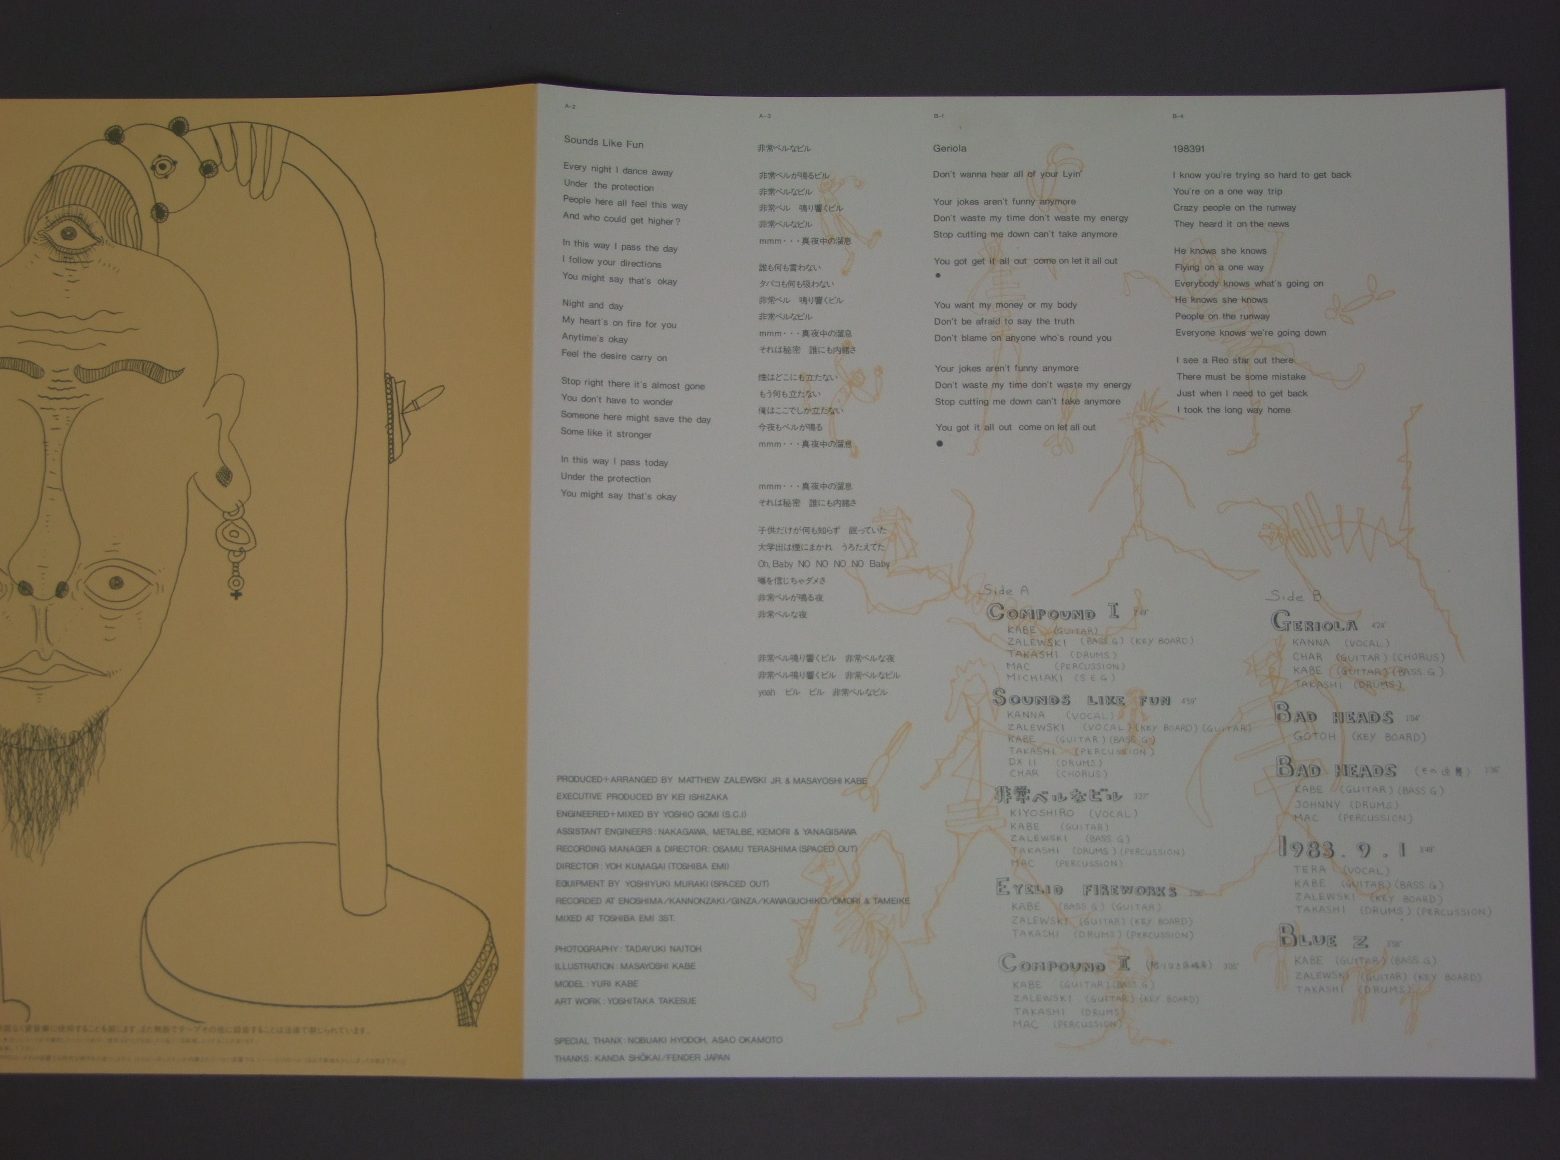 A-2
Sounds Like Fun
Every night I dance away
Under the protection
People here all feel this way
And who could get higher?
In this way I pass the day
I follow your directions
You might say that's okay
Night and day
My heart's on fire for you
Anytime's okay
Feel the desire carry on
Stop right there it's almost gone
You don't have to wonder
Someone here might save the day
Some like it stronger
In this way I pass today
Under the protection
You might say that's okay
A-3
非常ベルなビル
非常ベルが鳴るビル
非常ベルなビル
非常ベル 鳴り響くビル
非常ベルなビル
mmm・・・真夜中の溜息
誰も何も言わない
タバコも何も吸わない
非常ベル 鳴り響くビル
非常ベルなビル
mmm・・・真夜中の溜息
それは秘密 誰にも内緒さ
煙はどこにも立たない
もう何も立たない
俺はここでしか立たない
今夜もベルが鳴る
mmm・・・真夜中の溜息
mmm・・・真夜中の溜息
それは秘密 誰にも内緒さ
子供だけが何も知らず 眠っていた
大学出は煙にまかれ うろたえてた
Oh, Baby NO NO NO NO Baby
噂を信じちゃダメさ
非常ベルが鳴る夜
非常ベルな夜
非常ベル鳴り響くビル 非常ベルな夜
非常ベル鳴り響くビル 非常ベルなビル
yeah ビル ビル 非常ベルなビル
B-1
Geriola
Don't wanna hear all of your Lyin'
Your jokes aren't funny anymore
Don't waste my time don't waste my energy
Stop cutting me down can't take anymore
You got get it all out come on let it all out
●
You want my money or my body
Don't be afraid to say the truth
Don't blame on anyone who's round you
Your jokes aren't funny anymore
Don't waste my time don't waste my energy
Stop cutting me down can't take anymore
You got it all out come on let all out
●
B-4
198391
I know you're trying so hard to get back
You're on a one way trip
Crazy people on the runway
They heard it on the news
He knows she knows
Flying on a one way
Everybody knows what's going on
He knows she knows
People on the runway
Everyone knows we're going down
I see a Reo star out there
There must be some mistake
Just when I need to get back
I took the long way home
PRODUCED+ARRANGED BY MATTHEW ZALEWSKI JR & MASAYOSHI KABE
EXECUTIVE PRODUCED BY KEI ISHIZAKA
ENGINEERED+MIXED BY YOSHIO GOMI (S.C.I)
ASSISTANT ENGINEERS: NAKAGAWA, METALBE, KEMORI & YANAGISAWA
RECORDING MANAGER & DIRECTOR: OSAMU TERASHIMA (SPACED OUT)
DIRECTOR: YOH KUMAGAI (TOSHIBA EMI)
EQUIPMENT BY YOSHIYUKI MURAKI (SPACED OUT)
RECORDED AT ENOSHIMA/KANNONZAKI/GINZA/KAWAGUCHIKO/OMORI & TAMEIKE
MIXED AT TOSHIBA EMI 3ST.
PHOTOGRAPHY: TADAYUKI NAITOH
ILLUSTRATION: MASAYOSHI KABE
MODEL: YURI KABE
ART WORK: YOSHITAKA TAKESUE
SPECIAL THANX: NOBUAKI HYODOH, ASAO OKAMOTO
THANKS: KANDA SHŌKAI/FENDER JAPAN
Side A
COMPOUND I
KABE (GUITAR)
ZALEWSKI (BASS G) (KEY BOARD)
TAKASHI (DRUMS)
MAC (PERCUSSION)
MICHIAKI (S E G)
SOUNDS LIKE FUN 4'59"
KANNA (VOCAL)
ZALEWSKI (VOCAL) (KEY BOARD) (GUITAR)
KABE (GUITAR) (BASS G)
TAKASHI (PERCUSSION)
DX II (DRUMS)
CHAR (CHORUS)
非常ベルなビル 3'27"
KIYOSHIRO (VOCAL)
KABE (GUITAR)
ZALEWSKI (BASS G)
TAKASHI (DRUMS) (PERCUSSION)
MAC (PERCUSSION)
EYELID FIREWORKS
KABE (BASS G) (GUITAR)
ZALEWSKI (GUITAR) (KEY BOARD)
TAKASHI (DRUMS) (PERCUSSION)
COMPOUND I
KABE (GUITAR) (BASS G)
ZALEWSKI (GUITAR) (KEY BOARD)
TAKASHI (DRUMS)
MAC (PERCUSSION)
Side B
GERIOLA
KANNA (VOCAL)
CHAR (GUITAR) (CHORUS)
KABE (GUITAR) (BASS G)
TAKASHI (DRUMS)
BAD HEADS
GOTOH (KEY BOARD)
BAD HEADS
KABE (GUITAR) (BASS G)
JOHNNY (DRUMS)
MAC (PERCUSSION)
1983. 9. 1
TERA (VOCAL)
KABE (GUITAR) (BASS G)
ZALEWSKI (KEY BOARD)
TAKASHI (DRUMS) (PERCUSSION)
BLUE Z
KABE (GUITAR) (BASS G)
ZALEWSKI (GUITAR) (KEY BOARD)
TAKASHI (DRUMS)